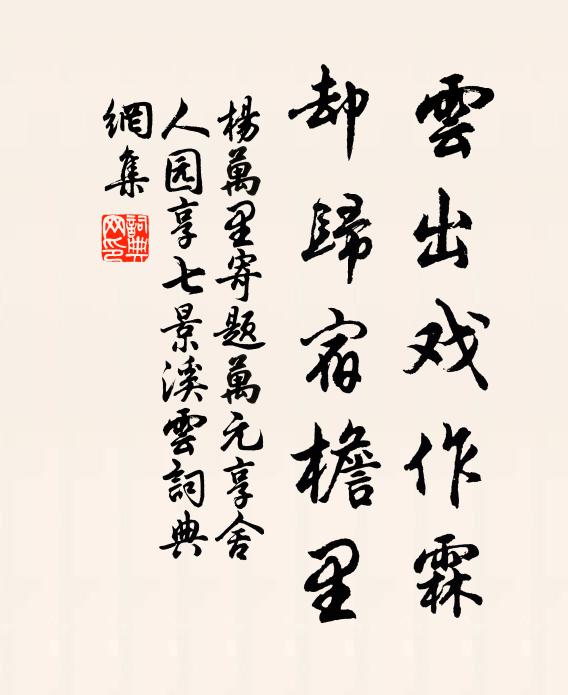 雲出戏作霖
却歸宿檐里
楊萬里寄题萬元享舍
人园享七景溪雲詞典
網集
詞典
网印